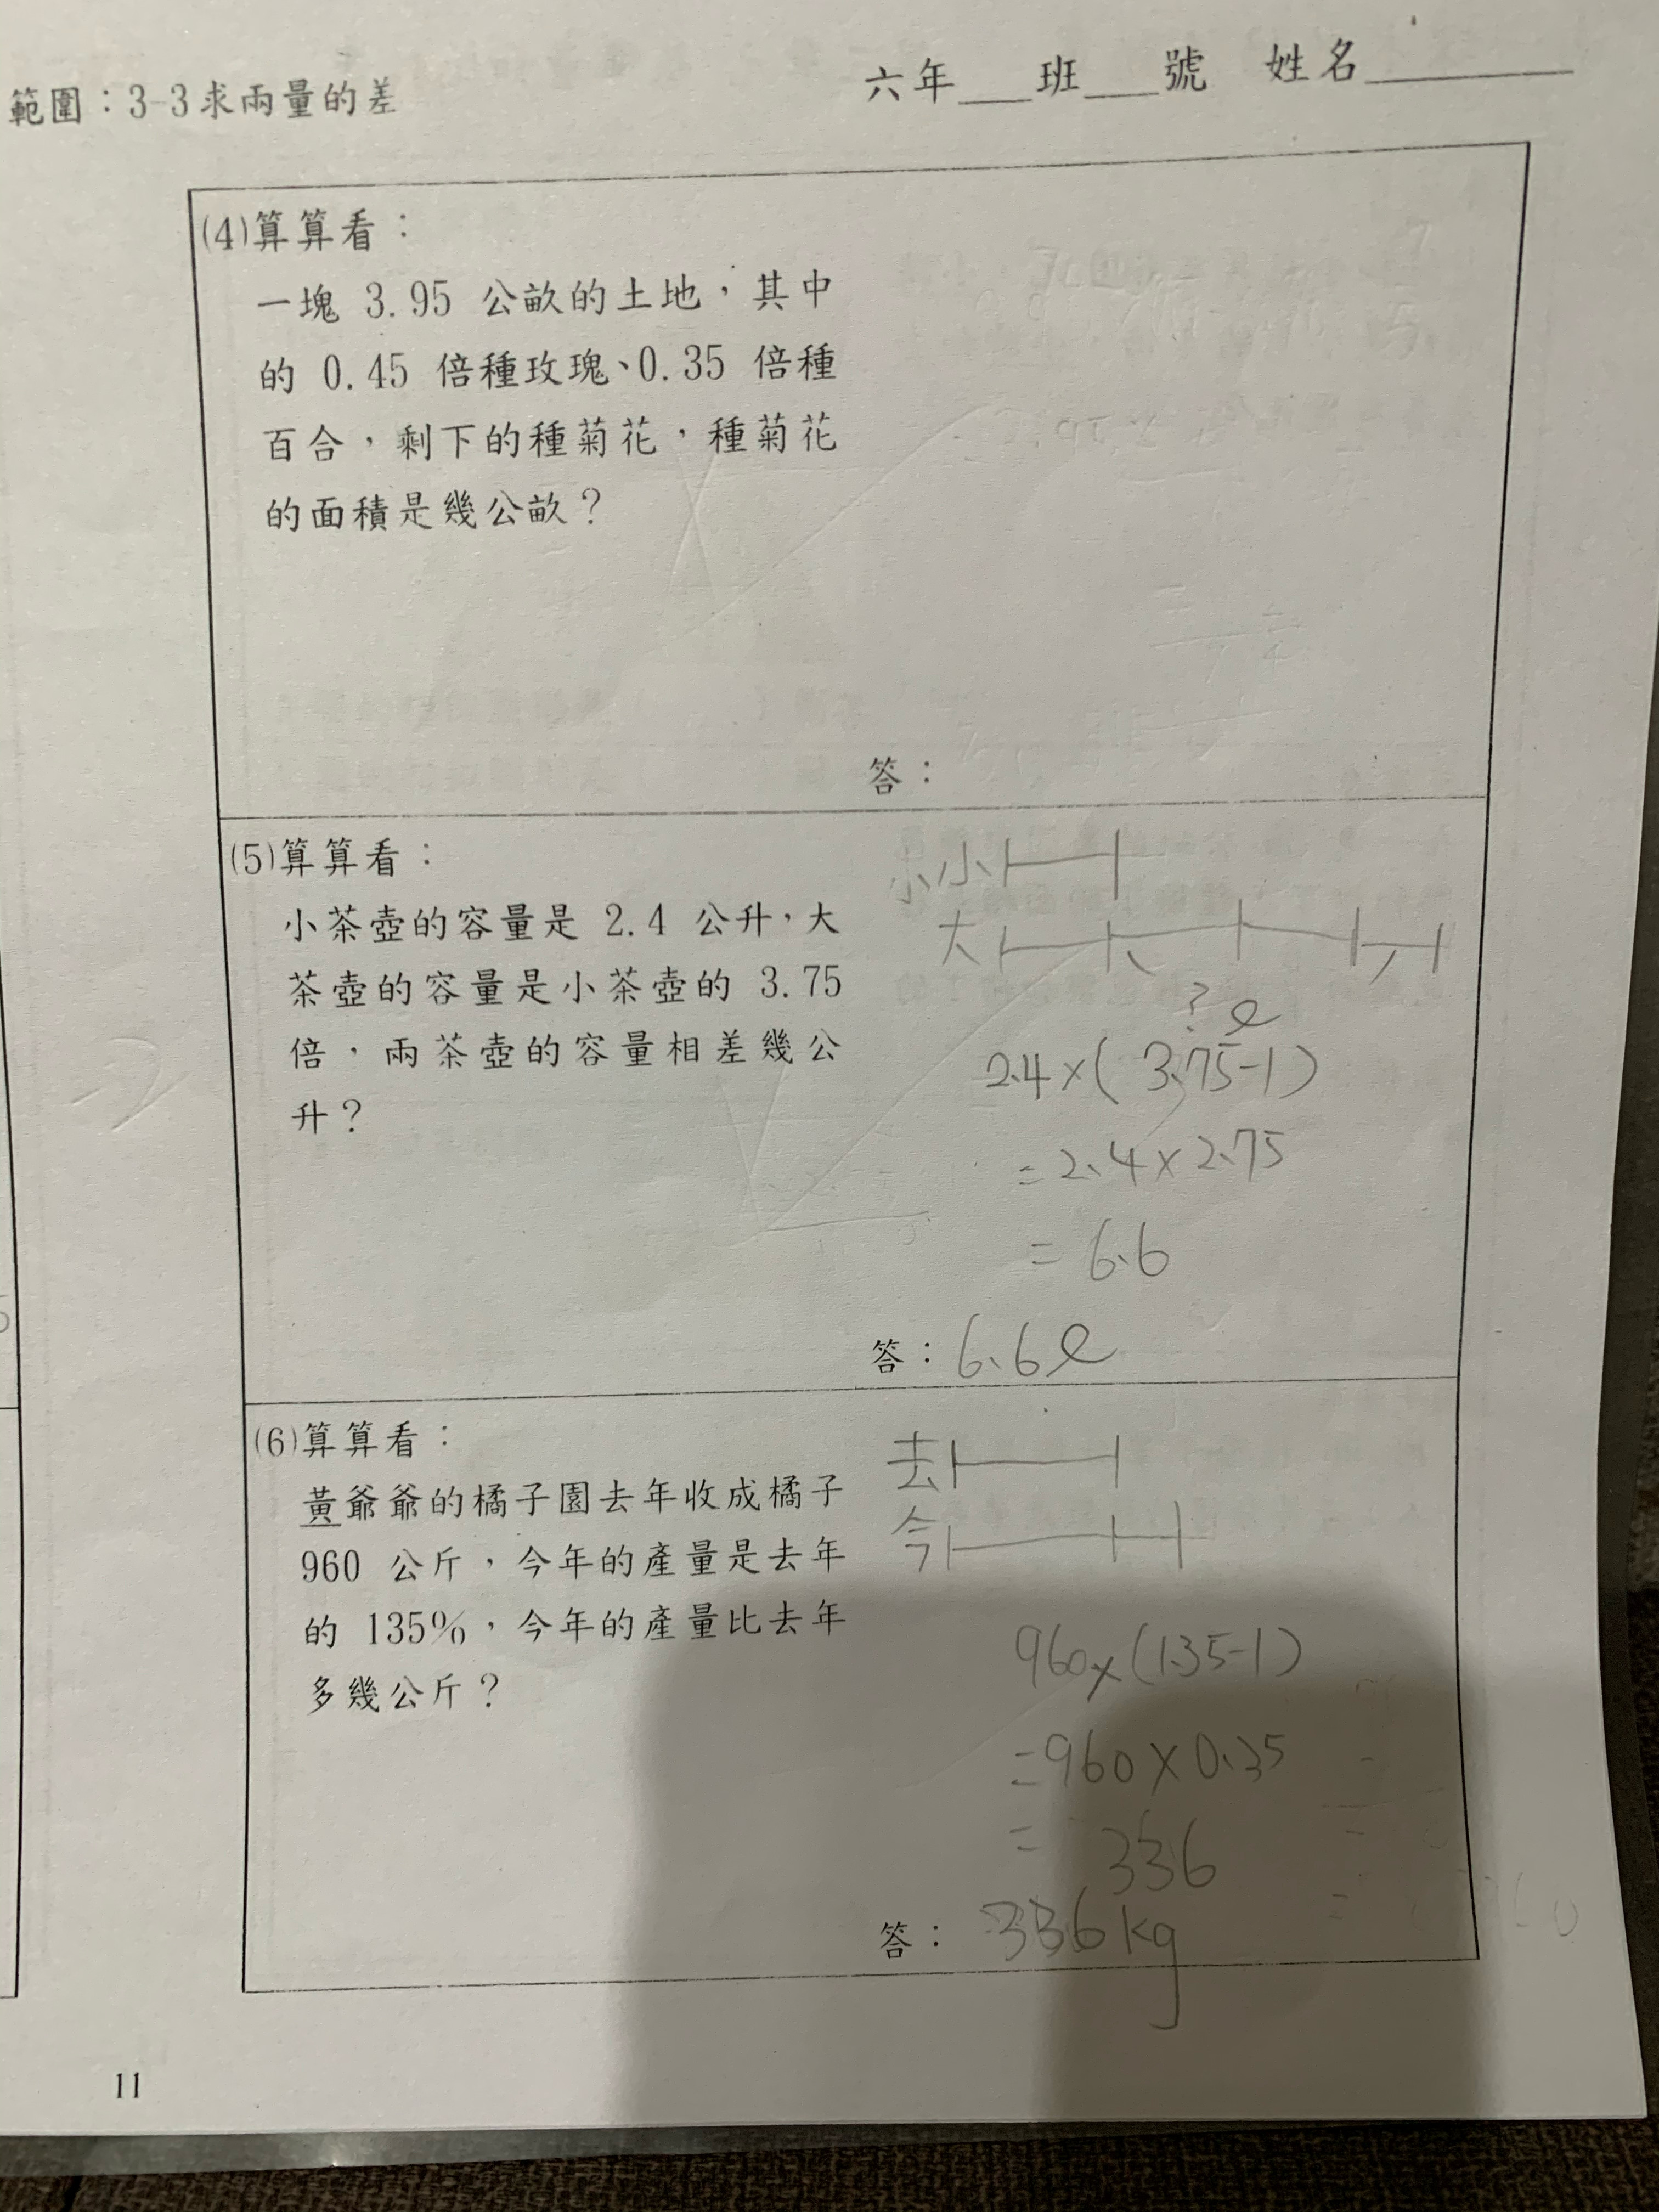 範圍：3-3求兩量的差
六年___班___號 姓名________
(4)算算看：
一塊 3.95 公畝的土地，其中
的 0.45 倍種玫瑰、0.35 倍種
百合，剩下的種菊花，種菊花
的面積是幾公畝？
答：
(5)算算看：
小茶壺的容量是 2.4 公升，大
茶壺的容量是小茶壺的 3.75
倍，兩茶壺的容量相差幾公
升？
小
大
?ℓ
2.4×(3.75-1)
=2.4×2.75
=6.6
答：6.6ℓ
(6)算算看：
黃爺爺的橘子園去年收成橘子
960 公斤，今年的產量是去年
的 135%，今年的產量比去年
多幾公斤？
去
今
960×(1.35-1)
=960×0.35
= 336
答：336kg
11